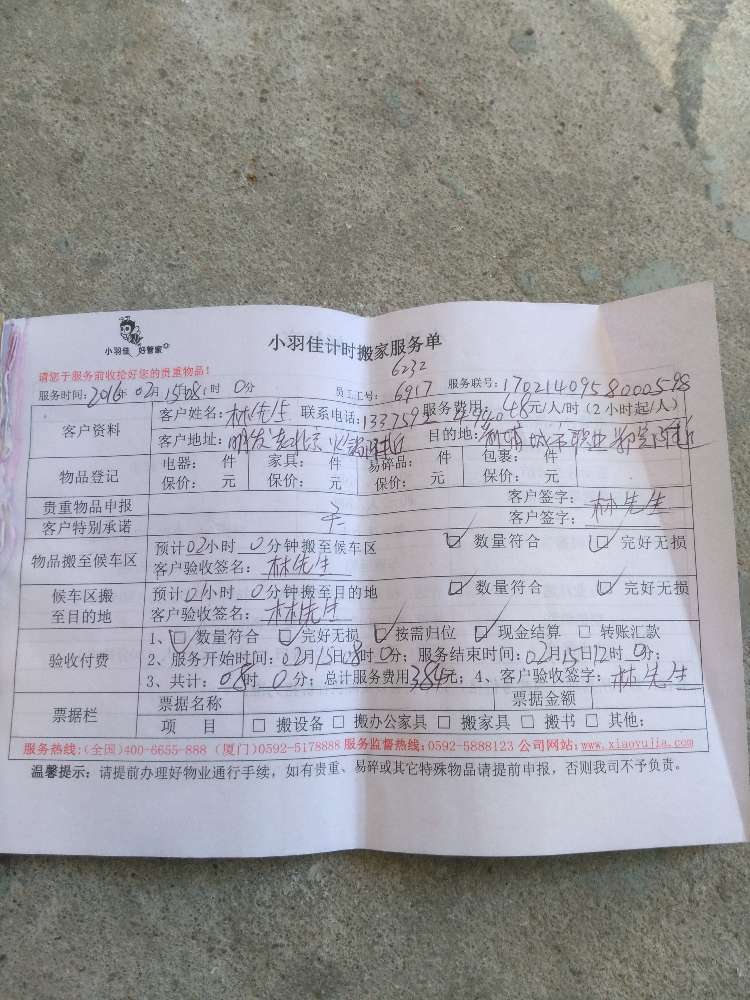 小羽佳 好管家
小羽佳计时搬家服务单
请您于服务前收拾好您的贵重物品!
6232
服务时间:2016年02月15日08时0分 员工工号: 6917 服务联号:1702140958000598
客户资料
客户姓名:林先生 联系电话:133759 服务费用:48元/人/时(2小时起/人)
客户地址:明发 北京 目的地:
物品登记
电器: 件 家具: 件 易碎品: 件 包裹: 件
保价: 元 保价: 元 保价: 元 保价: 元
贵重物品申报 客户签字:林先生
客户特别承诺 无 客户签字:
物品搬至候车区
预计02小时0分钟搬至候车区 数量符合 完好无损
客户验收签名:林先生
候车区搬
至目的地
预计02小时0分钟搬至目的地 数量符合 完好无损
客户验收签名:林先生
验收付费
1、数量符合 完好无损 按需归位 现金结算 转账汇款
2、服务开始时间:02月15日08时0分;服务结束时间:02月15日12时0分;
3、共计:08时0分;总计服务费用384元;4、客户验收签字:林先生
票据栏
票据名称 票据金额
项 目 搬设备 搬办公家具 搬家具 搬书 其他:
服务热线:(全国)400-6655-888 (厦门)0592-5178888 服务监督热线:0592-5888123 公司网站:www.xiaoyujia.com
温馨提示:请提前办理好物业通行手续,如有贵重、易碎或其它特殊物品请提前申报,否则我司不予负责。